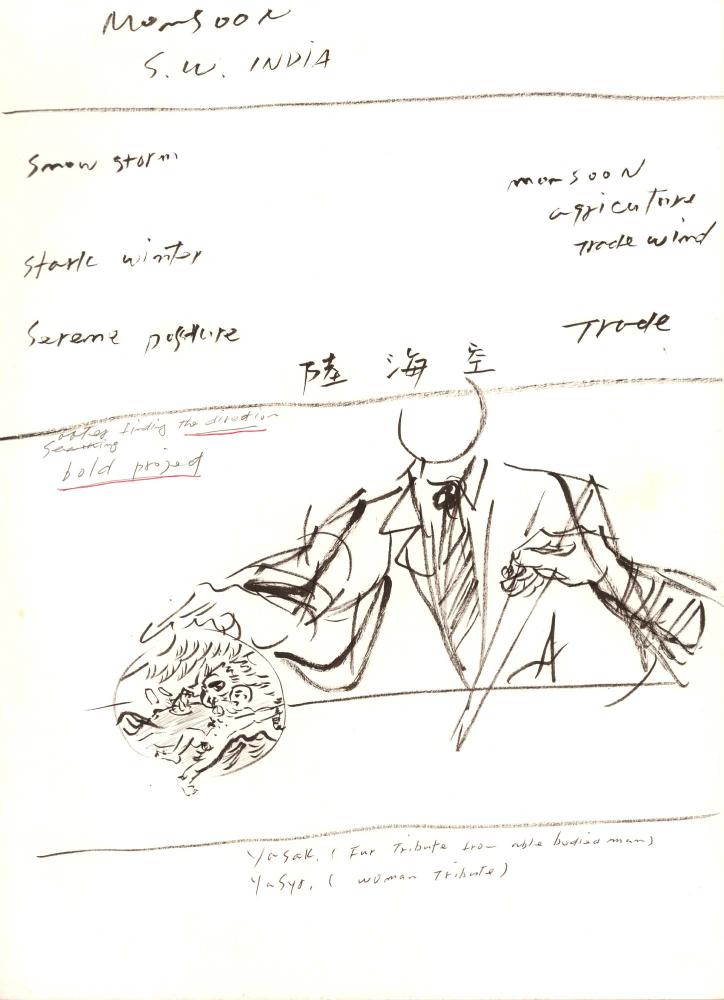 MONSOON
S.W. INDIA
Snow storm
monsooN
agriculture
Trade wind
Stark winter
Serene posture
Trade
陸 海 空
finding the direction
Searching
bold project
A
Yasak. ( Fur Tribute from able bodied man)
Yasyr. ( woman Tribute)